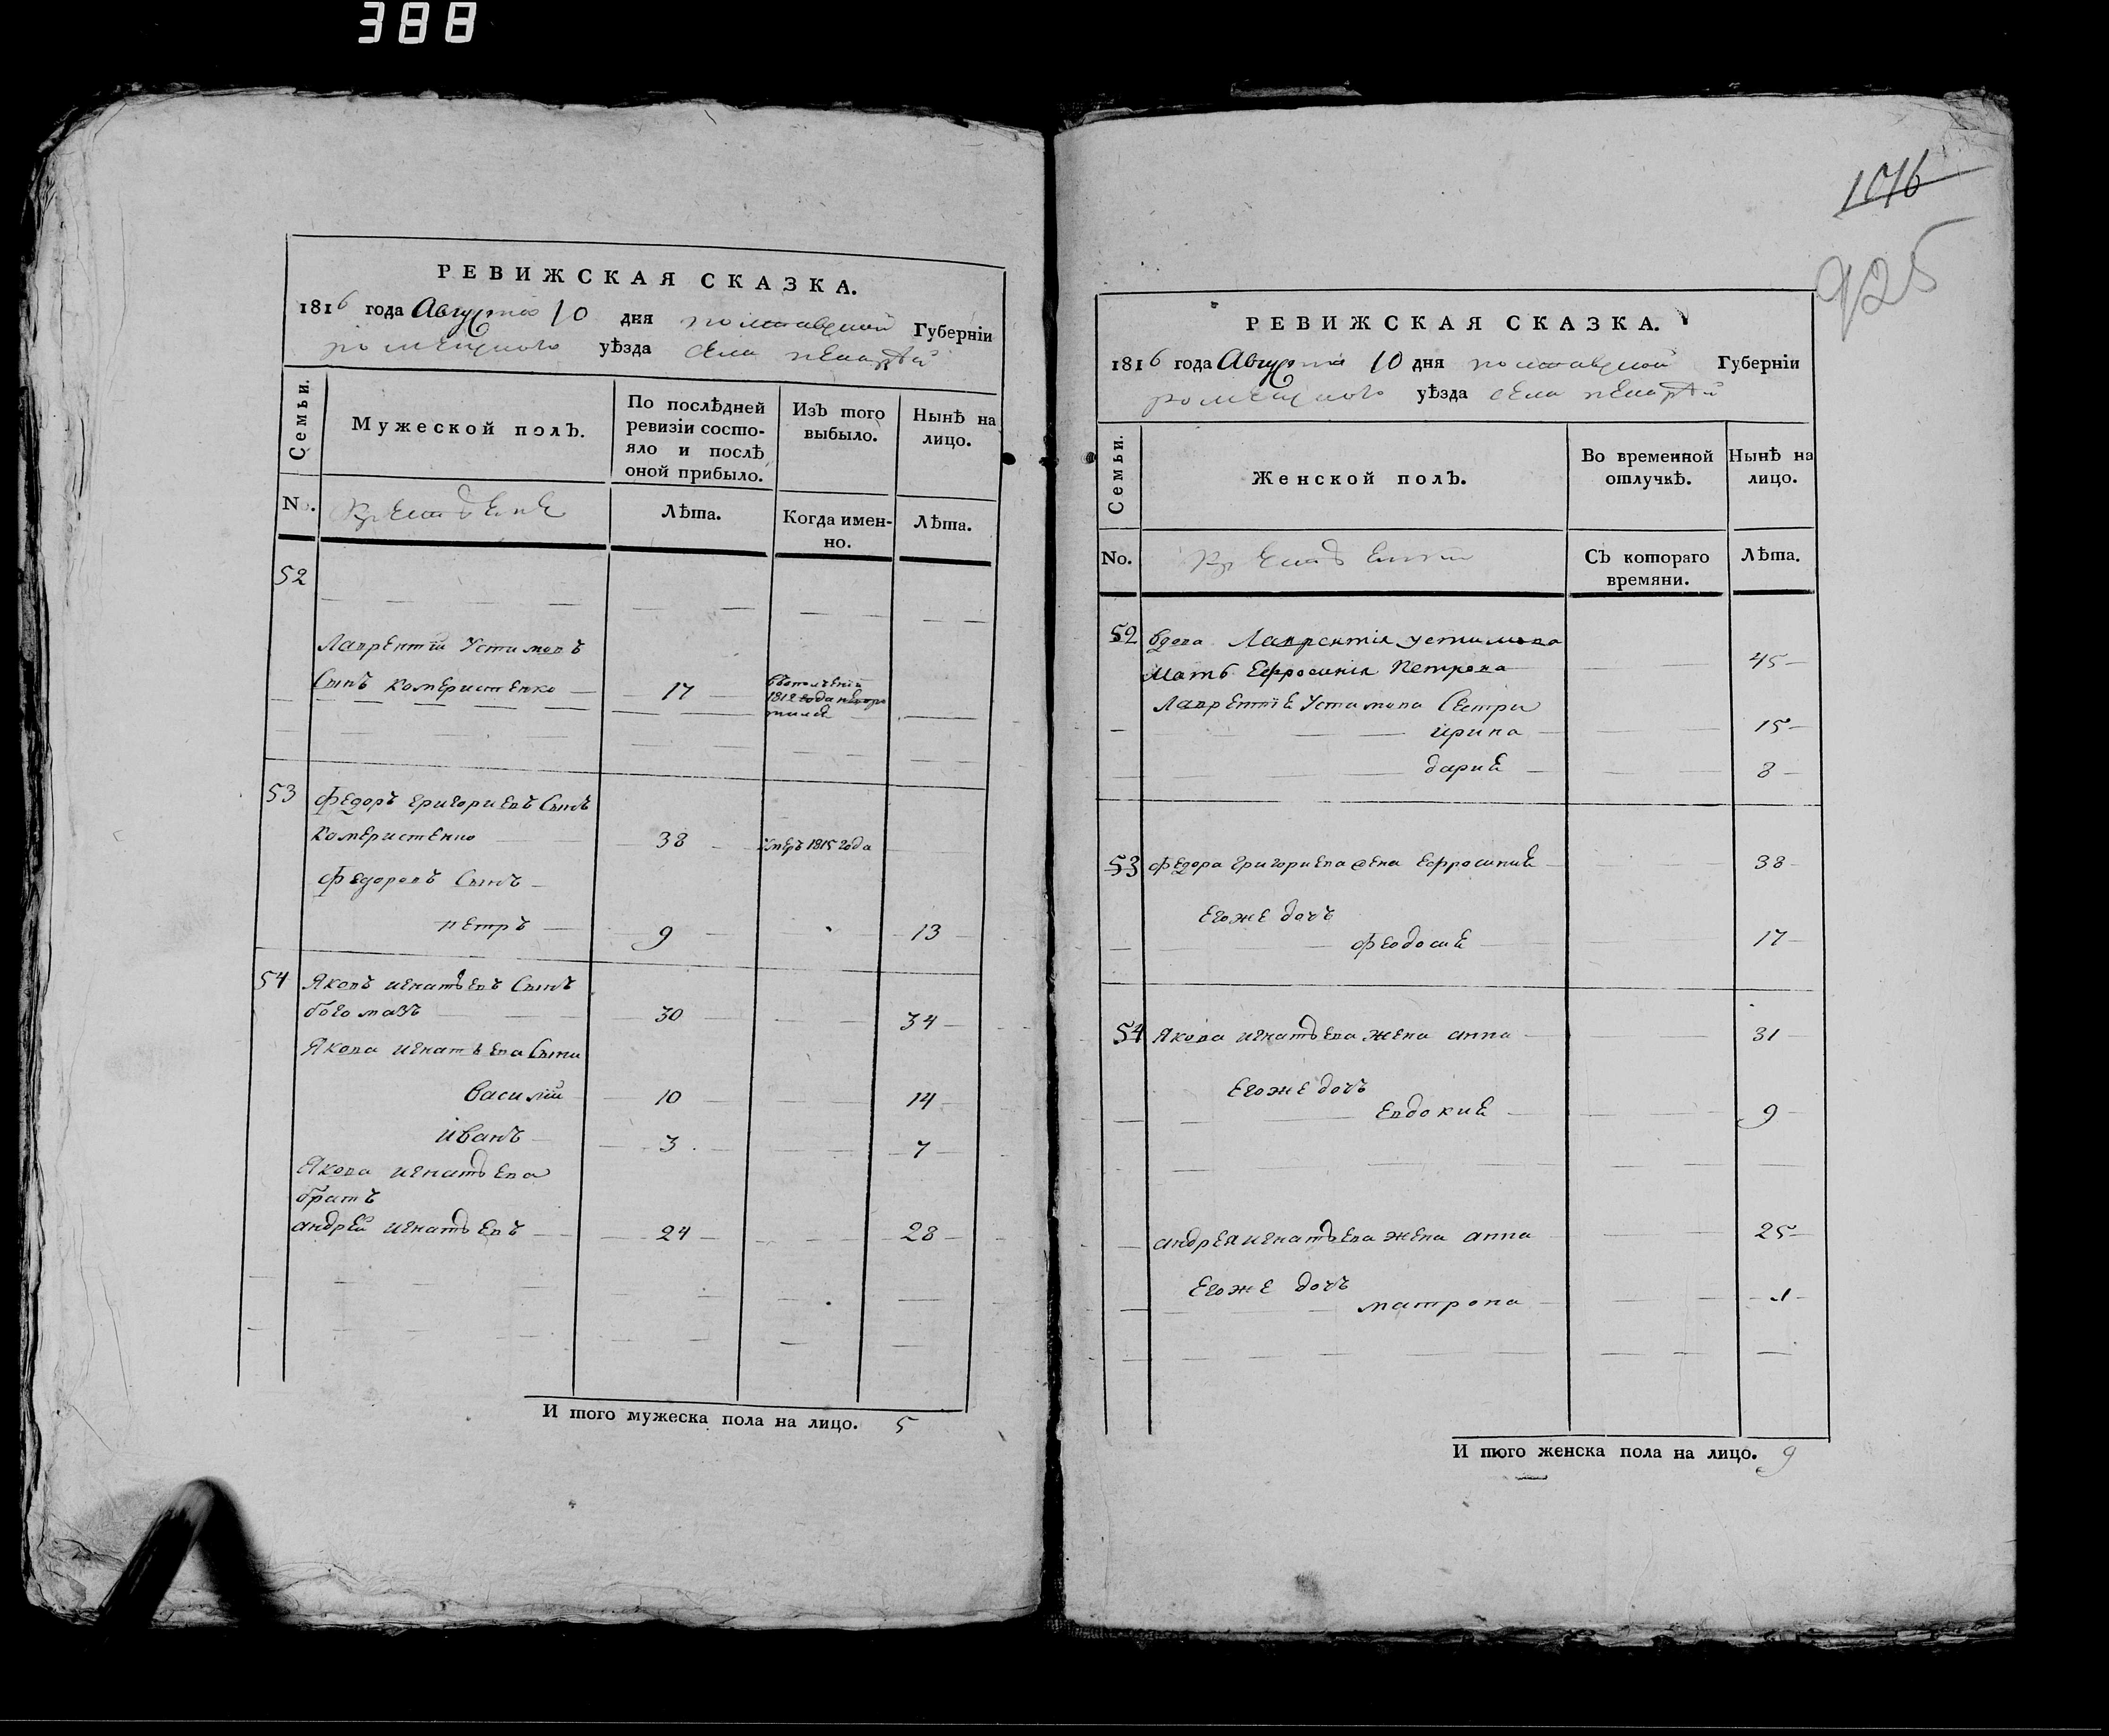 388
РЕВИЖСКАЯ СКАЗКА.
1816 года Августа 10 дня полтавской Губерніи
роменского уѣзда села
Семьи.
Мужеской полъ.
По послѣдней ревизіи состо-
яло и послѣ
оной прибыло.
Изъ того
выбыло.
Нынѣ на
лицо.
No.
Лѣта.
Когда имен-
но.
Лѣта.
52
Лаврентій Устимовъ
Сынъ Комеристенко 17
1812 года
53 Федоръ григориевъ Сынъ
Комеристенко 38 умеръ 1815 года
Федоровъ Сынъ
петръ 9 13
54 Яковъ игнатьевъ Сынъ
богомазъ 30 34
Якова игнатьева Сыны
Василій 10 14
иванъ 3 7
Якова игнатьева
братъ
андрей игнатьевъ 24 28
И того мужеска пола на лицо. 5
1016
925
РЕВИЖСКАЯ СКАЗКА.
1816 года Августа 10 дня полтавской Губерніи
роменского уѣзда села
Семьи.
Женской полъ.
Во временной
отлучкѣ.
Нынѣ на
лицо.
No.
Съ котораго
времяни.
Лѣта.
52 вдова Лаврентія устимова
мать Ефросинія Петрова 45
Лаврентіе Устимова Сестры
ирина 15
дария 8
53 Федора григориева жена Ефросиния 38
Егоже дочь
феодосия 17
54 Якова игнатьева жена анна 31
Егоже дочь
Евдокия 9
андрея игнатьева жена анна 25
Егоже дочь
матрона 1
И того женска пола на лицо. 9